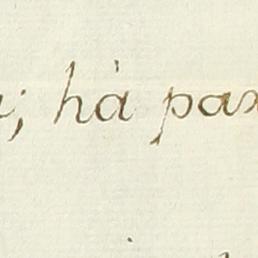 ; hà pax